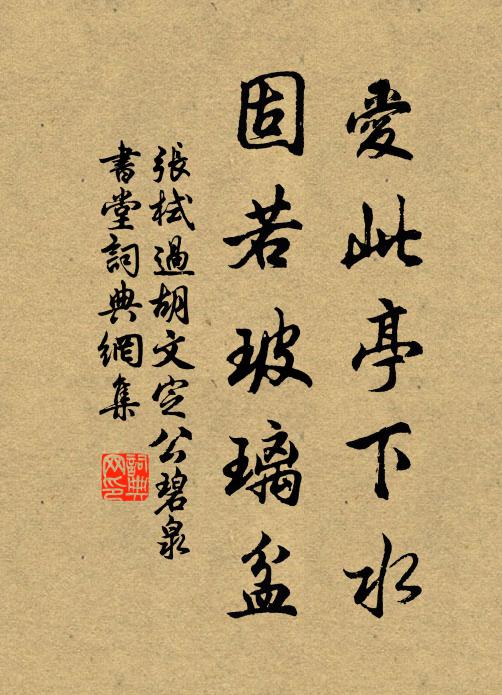 愛此亭下水
固若玻璃盆
張栻過胡文定公碧泉
書堂詞典網集
詞典
网印